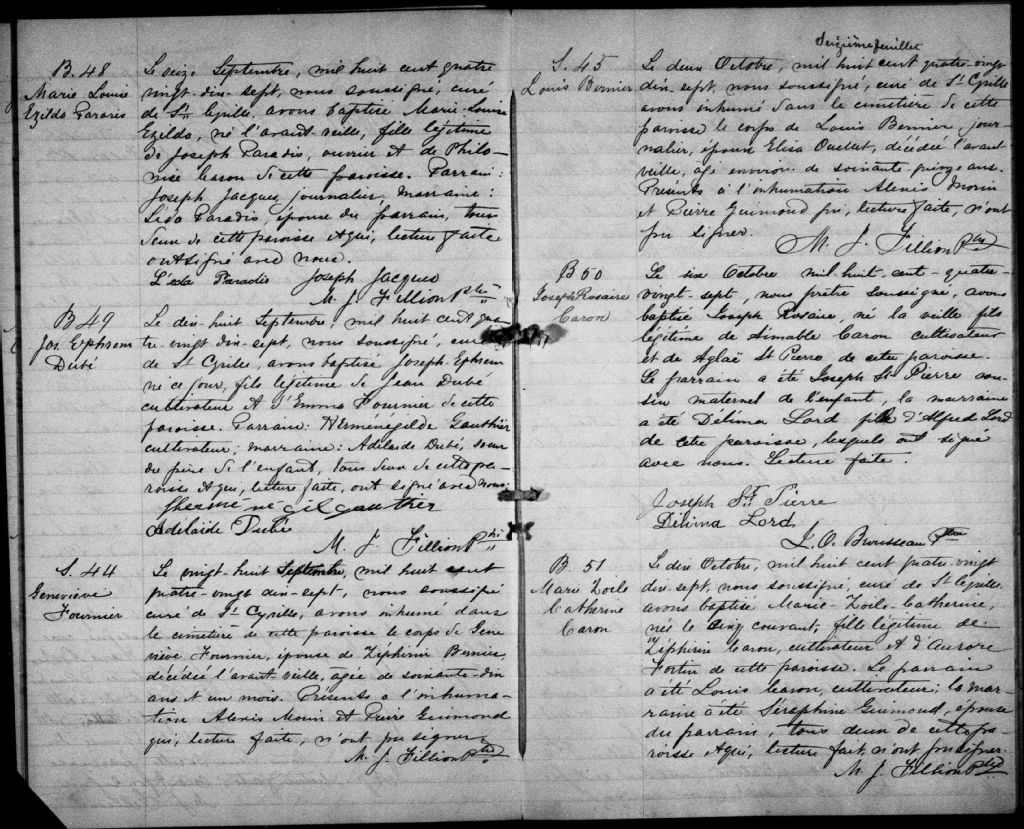 B. 48
Marie Louise
Ezilda Paradis
Le seize Septembre, mil huit cent quatre
vingt-dix-sept, nous soussigné, curé
de St. Cyrille, avons baptisé Marie-Louise
Ezilda, né l'avant-veille, fille légitime
de Joseph Paradis, ouvrier et de Philo-
mise Caron de cette paroisse. Parrain:
Joseph Jacques, journalier, marraine:
Léda Paradis, épouse du parrain, tous
deux de cette paroisse et qui, lecture faite
ont signé avec nous.
Léda Paradis Joseph Jacques
M. J. Fillion Ptre
B 49
Jos. Ephrem
Dubé
Le dix-huit Septembre, mil huit cent qua-
tre-vingt dix-sept, nous soussigné, curé
de St Cyrille, avons baptisé Joseph-Ephrem
né ce jour, fils légitime de Jean Dubé
cultivateur et d'Emma Fournier de cette
paroisse. Parrain: Herménégilde Gauthier
cultivateur; marraine: Adelaide Dubé, soeur
du père de l'enfant, tous deux de cette pa-
roisse et qui, lecture faite, ont signé avec nous.
gauthier
Adelaide Dubé
M. J. Fillion Ptre
S. 44
Geneviève
Fournier
Le vingt-huit Septembre, mil huit cent
quatre-vingt dix-sept, nous soussigné
curé de St Cyrille, avons inhumé dans
le cimetière de cette paroisse le corps de Gene
viève Fournier, épouse de Zéphirin Bernier,
décédée l'avant veille, âgée de soixante-dix
ans et un mois. Présents à l'inhuma-
tion Alexis Morin et Pierre Guimond
qui, lecture faite, n'ont pu signer.
M. J. Fillion Ptre
Seizième feuillet
S. 45
Louis Bernier
Le deux Octobre, mil huit cent quatre-vingt
dix-sept, nous soussigné, curé de St Cyrille
avons inhumé dans le cimetière de cette
paroisse le corps de Louis Bernier, jour-
nalier, époux Elisa Ouellet, décédé l'avant
veille, âgé environ de soixante-quinze ans.
Présents à l'inhumation Alexis Morin
et Pierre Guimond qui, lecture faite, n'ont
pu signer.
M. J. Fillion Ptre
B 50
Joseph Rosaire
Caron
Le six Octobre mil-huit-cent-quatre-
vingt-sept, nous prêtre soussigné, avons
baptisé Joseph Rosaire, né la veille fils
légitime de Aimable Caron cultivateur
et de Aglaé St Pierre de cette paroisse.
Le parrain a été Joseph St Pierre cou-
sin maternel de l'enfant, la marraine
a été Délima Lord fille d'Alfred Lord
de cette paroisse, lesquels ont signé
avec nous. Lecture faite.
Joseph St Pierre
Délima Lord
J. O. Brousseau Ptre
B. 51
Marie Zoile
Catherine
Caron
Le dix Octobre, mil huit cent quatre-vingt
dix-sept, nous soussigné, curé de St Cyrille
avons baptisé Marie-Zoile-Catherine,
née le cinq courant, fille légitime de
Zéphirin Caron, cultivateur et d'Aurore
Fortin de cette paroisse. Le parrain
a été Louis Caron, cultivateur; la mar-
raine a été Séraphine Guimond, épouse
du parrain, tous deux de cette pa-
roisse et qui, lecture fait, n'ont pu signer.
M. J. Fillion Ptre